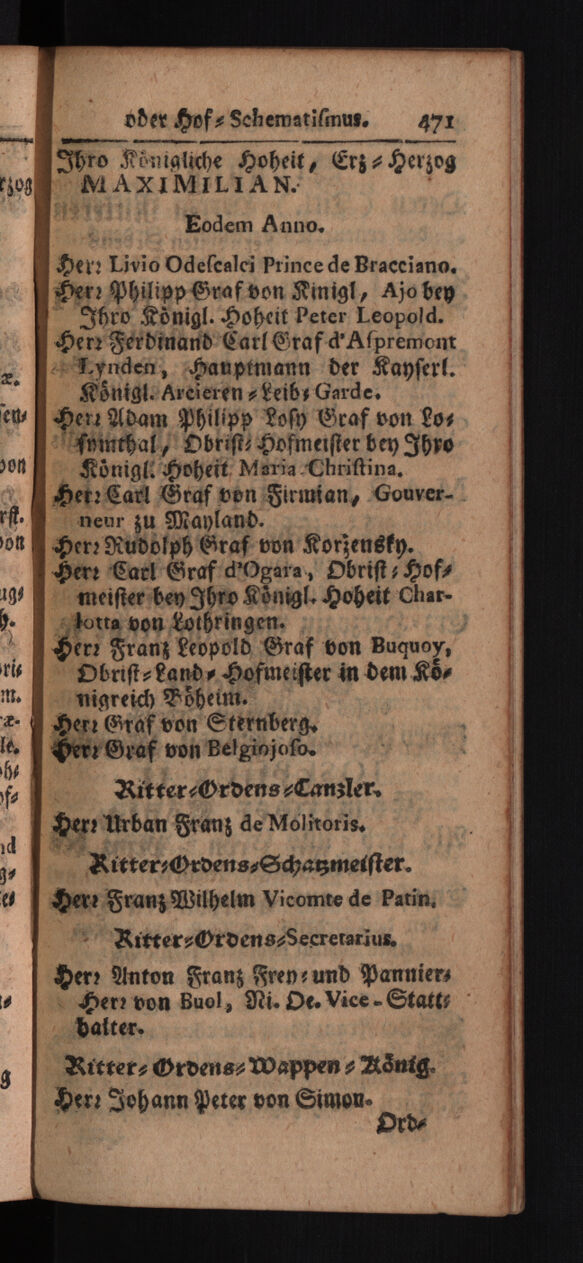 oder Hof-Schematismus. 471
Ihro Königliche Hoheit, Erz-Herzog
MAXIMILIAN.
Eodem Anno.
Herr Livio Odescalci Prince de Bracciano.
Herr Philipp Graf von Kinigl, Ajo bey
Ihro Königl. Hoheit Peter Leopold.
Herr Ferdinand Carl Graf d'Aspremont
Lynden, Hauptmann der Kayserl.
Königl. Arcieren-Leib-Garde.
Herr Adam Philipp Losy Graf von Lo-
symthal, Obrist-Hofmeister bey Ihro
Königl. Hoheit Maria Christina.
Herr Carl Graf von Firmian, Gouver-
neur zu Mayland.
Herr Rudolph Graf von Korzensky.
Herr Carl Graf d'Ogara, Obrist-Hof-
meister bey Ihro Königl. Hoheit Char-
lotta von Lothringen.
Herr Franz Leopold Graf von Buquoy,
Obrist-Land-Hofmeister in dem Kö-
nigreich Böheim.
Herr Graf von Sternberg.
Herr Graf von Belgiojoso.
Ritter-Ordens-Canzler.
Herr Urban Franz de Molitoris.
Ritter-Ordens-Schatzmeister.
Herr Franz Wilhelm Vicomte de Patin.
Ritter-Ordens-Secretarius.
Herr Anton Franz Frey-und Pannier-
Herr von Buol, Ni. Oe. Vice-Statt-
halter.
Ritter-Ordens-Wappen-König.
Herr Johann Peter von Simon.
Ord-